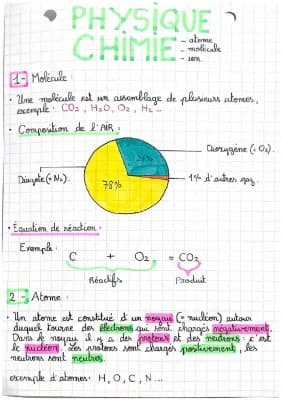 PHYSIQUE
CHIMIE
- atome
- molécule
- ion
1 - Molécule :
• Une molécule est un assemblage de plusieurs atomes,
exemple : CO2, H2O, O2, H2...
• Composition de l'AIR :
Dioxygène (= O2).
21%
Diazote (= N2).
78%
1% d'autres gaz.
• Équation de réaction :
Exemple :
C + O2 = CO2
Réactifs Produit
2 - Atome :
• Un atome est constitué d'un noyau (= nucléon) autour
duquel tourne des électrons qui sont chargés négativement.
Dans le noyau il y a des protons et des neutrons : c'est
le nucléon. Les protons sont chargés positivement, les
neutrons sont neutres.
exemple d'atomes : H, O, C, N...